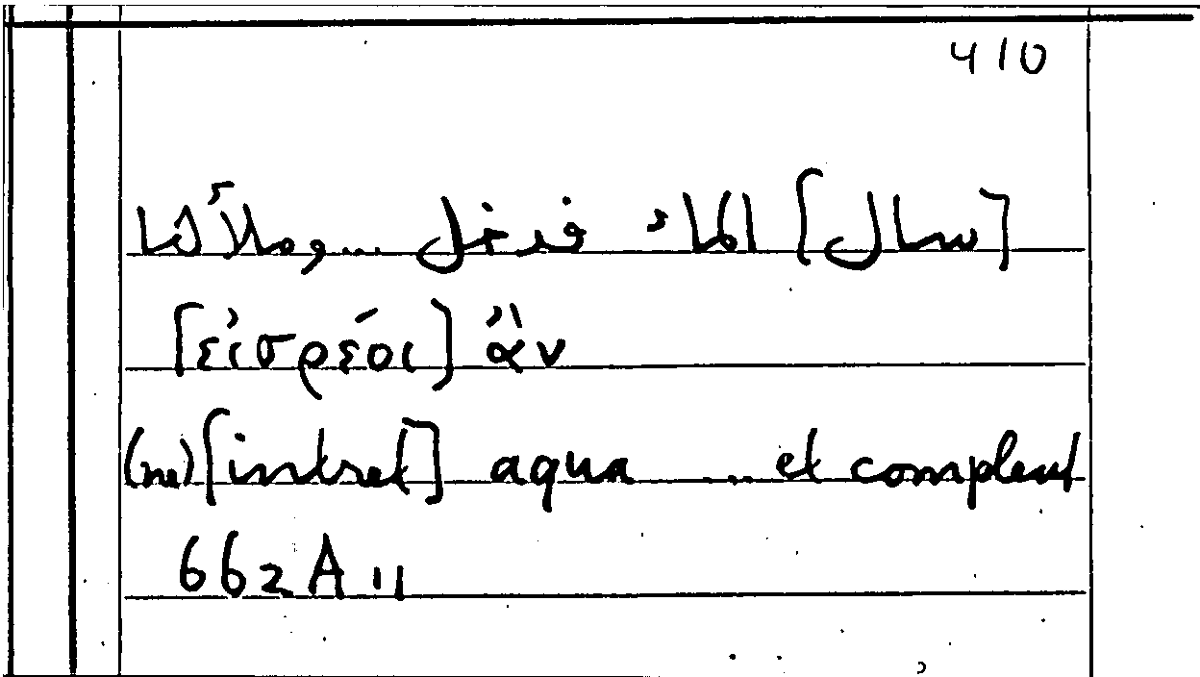 410
[سال] الماء فدخل ... وملأها
[εἰσρέοι] ἂν
(ne) [intret] aqua ... et compleat
662A11